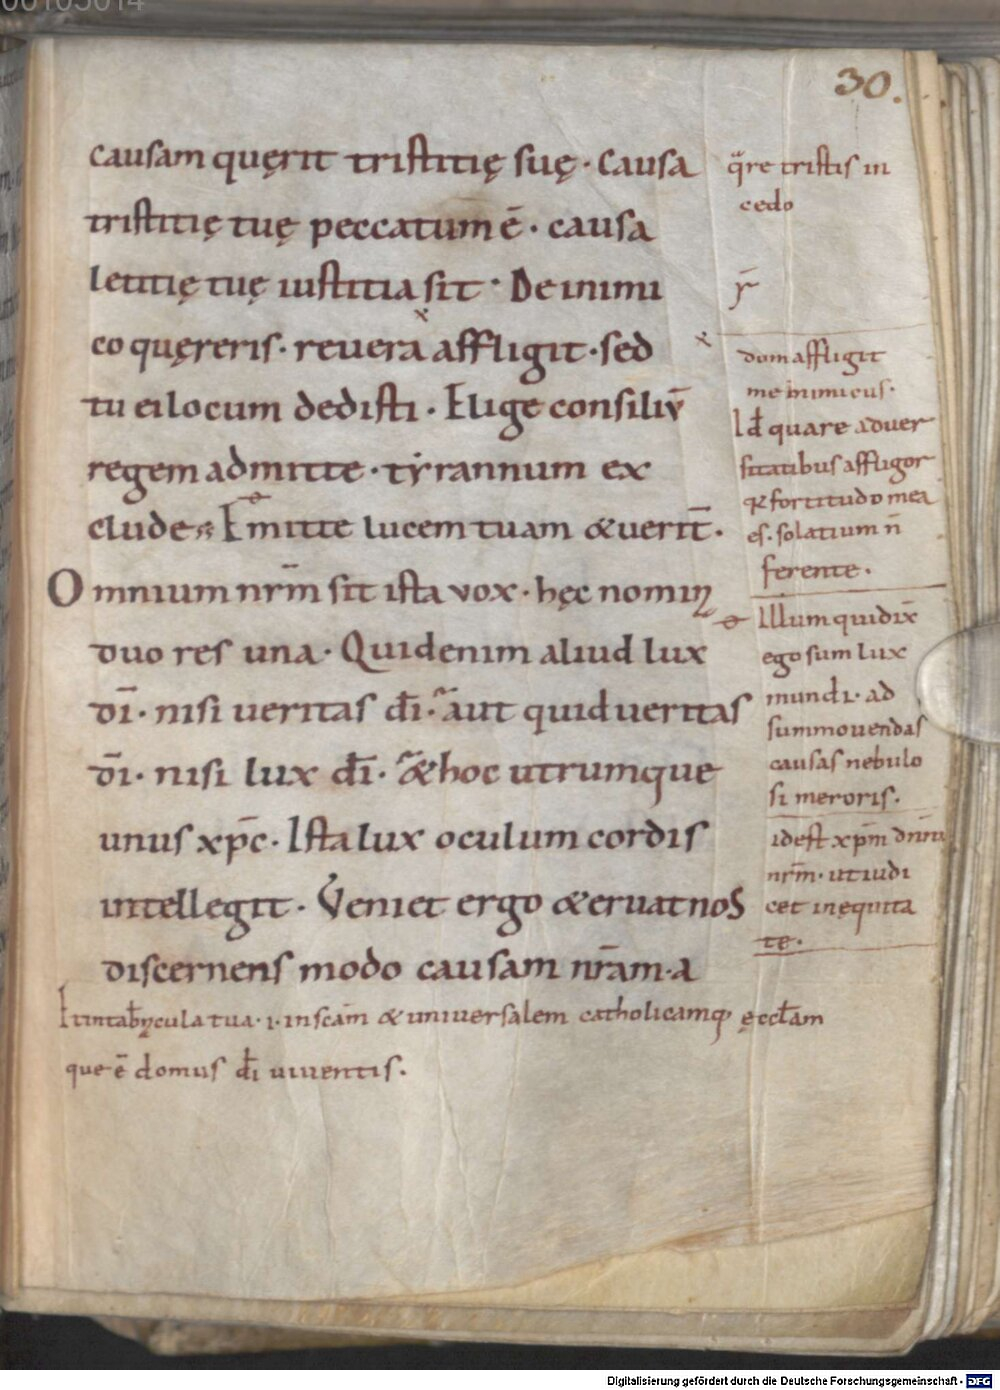 30.
causam quęrit tristitię suę · Causa
tristitię tuę peccatum ē · causa
letitię tuę iustitia sit · De inimi
co quęreris · reuera affligit · sed
tu ei locum dedisti · Elige consiliū
regem admitte · tyrannum ex
clude · Emitte lucem tuam & uerit̄ ·
Omnium nr̄m sit ista vox · hęc nomin
duo res una · Quid enim aliud lux
dī · nisi ueritas dī · aut quid ueritas
dī · nisi lux dī · & hoc utrumque
unus xp̄c · Ista lux oculum cordis
intellegit · Veniet ergo & eruat nos
discernens modo causam nr̄am · a
Et in tab̄nacula tua · i · in sc̄am & uniuersalem catholicamq; ęccl̄am
que ē domus dī uiuentis ·
q̄re tristis in
cedo
x
dum affligit
me inimicus ·
Id quare aduer
sitatibus affligor
fortitudo mea
es · solatium n̄
ferente ·
Illum qui dix̄
ego sum lux
mundi · ad
summouendas
causas nebulo
si meroris ·
id est xp̄m dnm̄
nr̄m · ut iudi
cet in equita
te ·
Digitalisierung gefördert durch die Deutsche Forschungsgemeinschaft - DFG